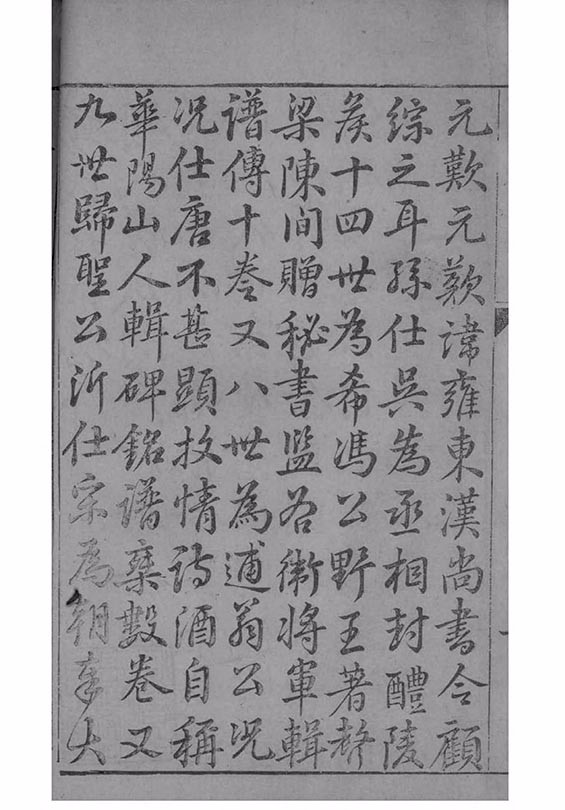 元歎元歎諱雍東漢尚書令顧
綜之耳孫仕吳為丞相封醴陵
矦十四世為希馮公野王著
梁陳间贈秘書监右衛將軍輯
譜傳十卷又八世為逋翁公况
况仕唐不甚顯放情詩酒自稱
華陽山人輯碑銘譜槩數卷又
九世歸聖公沂仕宗為朝奉大